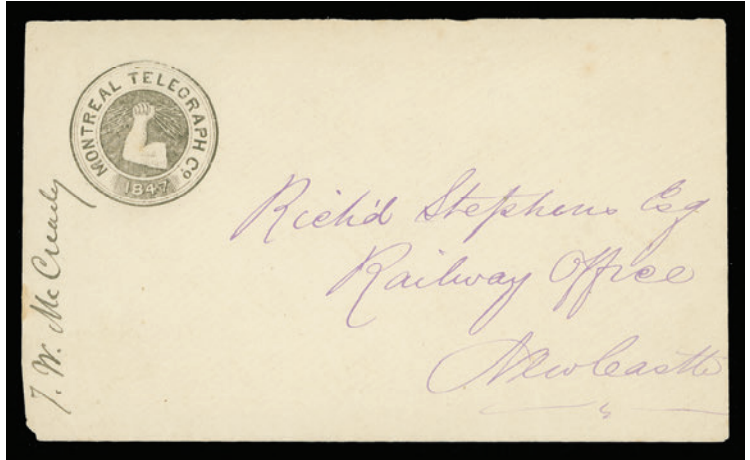 MONTREAL TELEGRAPH Co.
1847
T. W. McCready
Rich'd Stephens Esq
Railway Office
NewCastle